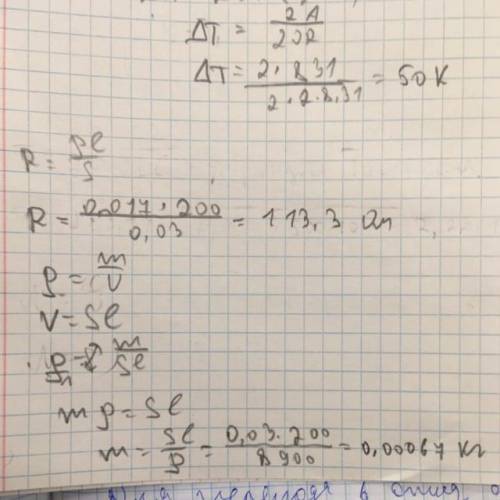 ΔT = 2A / 2νR
ΔT = 2·831 / 2·2·8,31 = 50 K
R = ρl / S
R = 0,017·200 / 0,03 = 113,3 Ом
ρ = m / V
V = Sl
m ρ = Sl
m = Sl / ρ = 0,03·200 / 8900 = 0,00067 кг